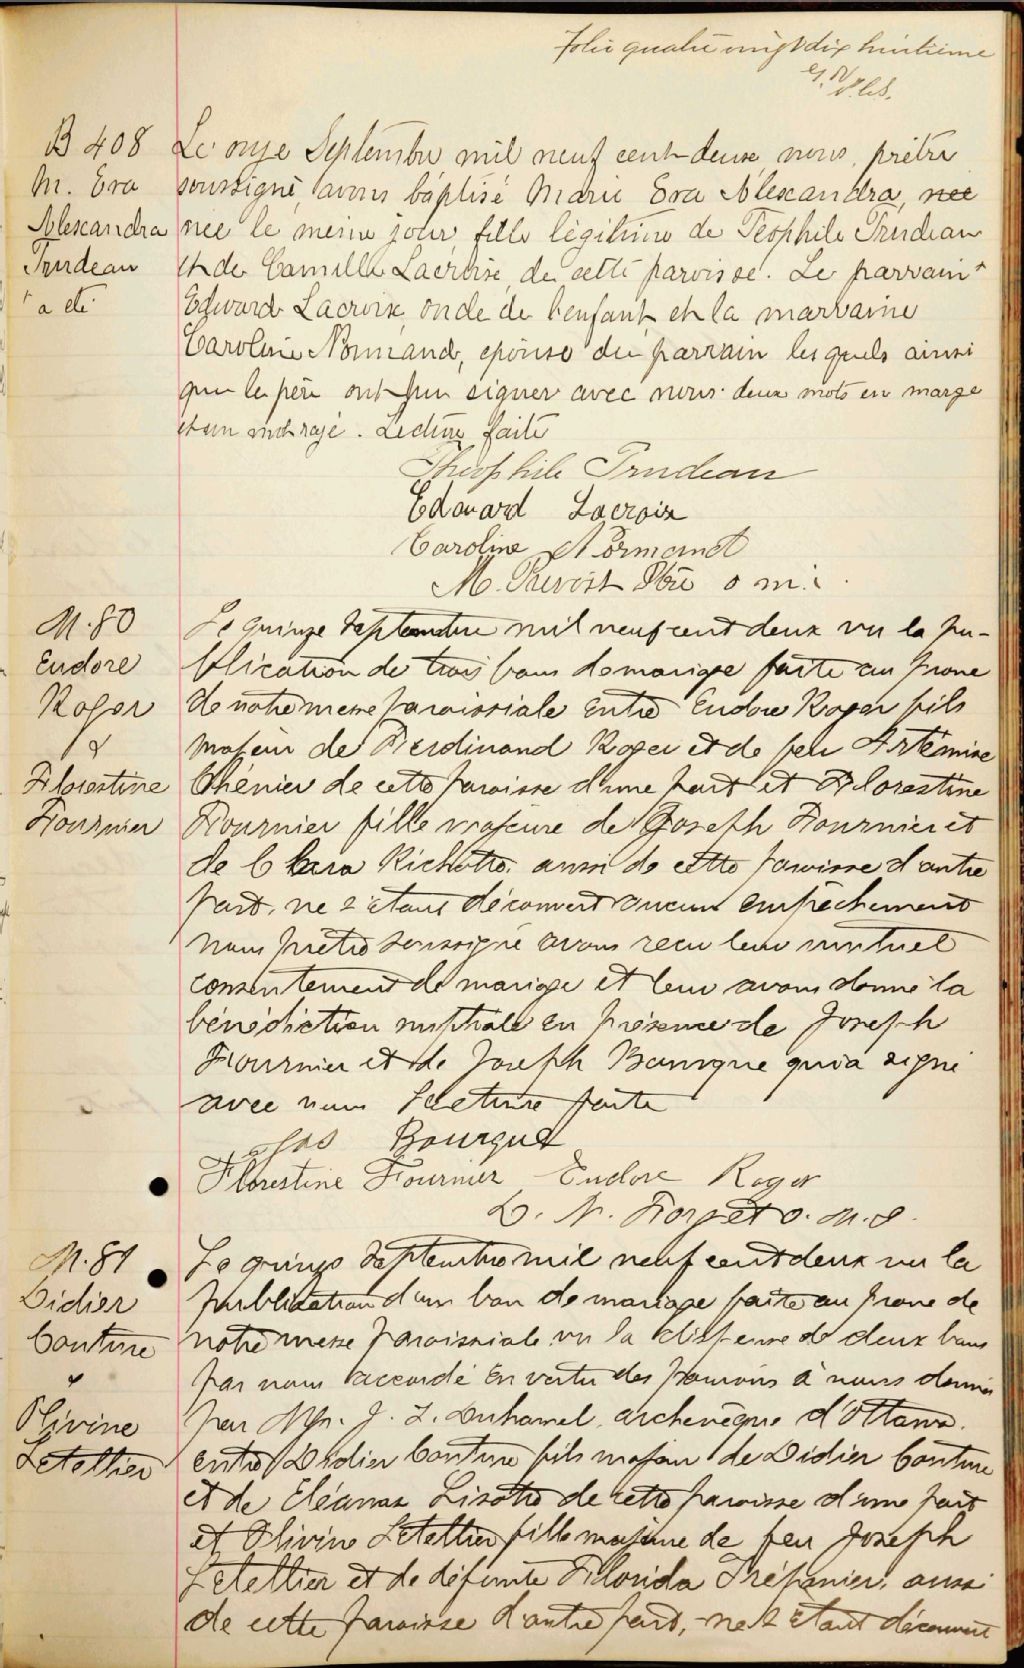 folio quatre vingt dix huitième
B 408
M. Eva
Alexandra
Trudeau
+ a été
Le onze Septembre mil neuf cent deux, nous, prêtre
soussigné, avons baptisé Marie Eva Alexandra, née
née le même jour, fille légitime de Téophile Trudeau
et de Camille Lacroix, de cette paroisse. Le parrain +
Edward Lacroix, oncle de l'enfant, et la marraine
Caroline Normand, épouse du parrain lesquels ainsi
que le père ont pu signer avec nous. deux mots en marge
et un mot rayé. Lecture faite
Théophile Trudeau
Edouard Lacroix
Caroline Normand
M. Prevost Ptre o m i.
M. 80
Eudore
Roger
&
Florestine
Fournier
Le quinze Septembre mil neuf cent deux vu la pu-
blication de trois bans de mariage faite au prone
de notre messe paroissiale entre Eudore Roger fils
majeur de Ferdinand Roger et de feu Artémise
Chénier de cette paroisse d'une part et Florestine
Fournier fille majeure de Joseph Fournier et
de Clara Richotte. aussi de cette paroisse d'autre
part, ne s'étant découvert aucun empêchement
nous prêtre soussigné avons recu leur mutuel
consentement de mariage et leur avons donné la
bénédiction nuptiale en présence de Joseph
Fournier et de Joseph Bourque qui a signé
avec nous Lecture faite
Jos Bourque
Florestine Fournier Eudore Roger
L. N. Forget o. m. I.
M. 81
Didier
Couture
&
Olivine
Letellier
Le quinze Septembre mil neuf cent deux vu la
publication d'un ban de mariage faite au prone de
notre messe paroissiale vu la dispense de deux bans
par nous accordé en vertu des pouvoirs à nous donnés
par Mgr. J. T. Duhamel, archevêque d'Ottawa.
entre Didier Couture fils majeur de Didier Couture
et de Eléanor Lisotte de cette paroisse d'une part
et Olivine Letellier fille majeure de feu Joseph
Letellier et de défunte Florida Trépanier, aussi
de cette paroisse d'autre part, ne s'étant découvert